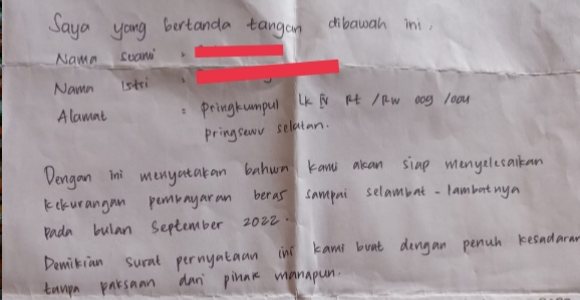 Saya yang bertanda tangan dibawah ini.
Nama Suami :
Nama Istri :
Alamat : Pringkumpul Lk IV Rt /RW 009 /004
Pringsewu selatan.
Dengan ini menyatakan bahwa kami akan siap menyelesaikan
kekurangan pembayaran beras sampai selambat - lambatnya
pada bulan September 2022.
Demikian surat pernyataan ini kami buat dengan penuh kesadaran
tanpa paksaan dari pihak manapun.